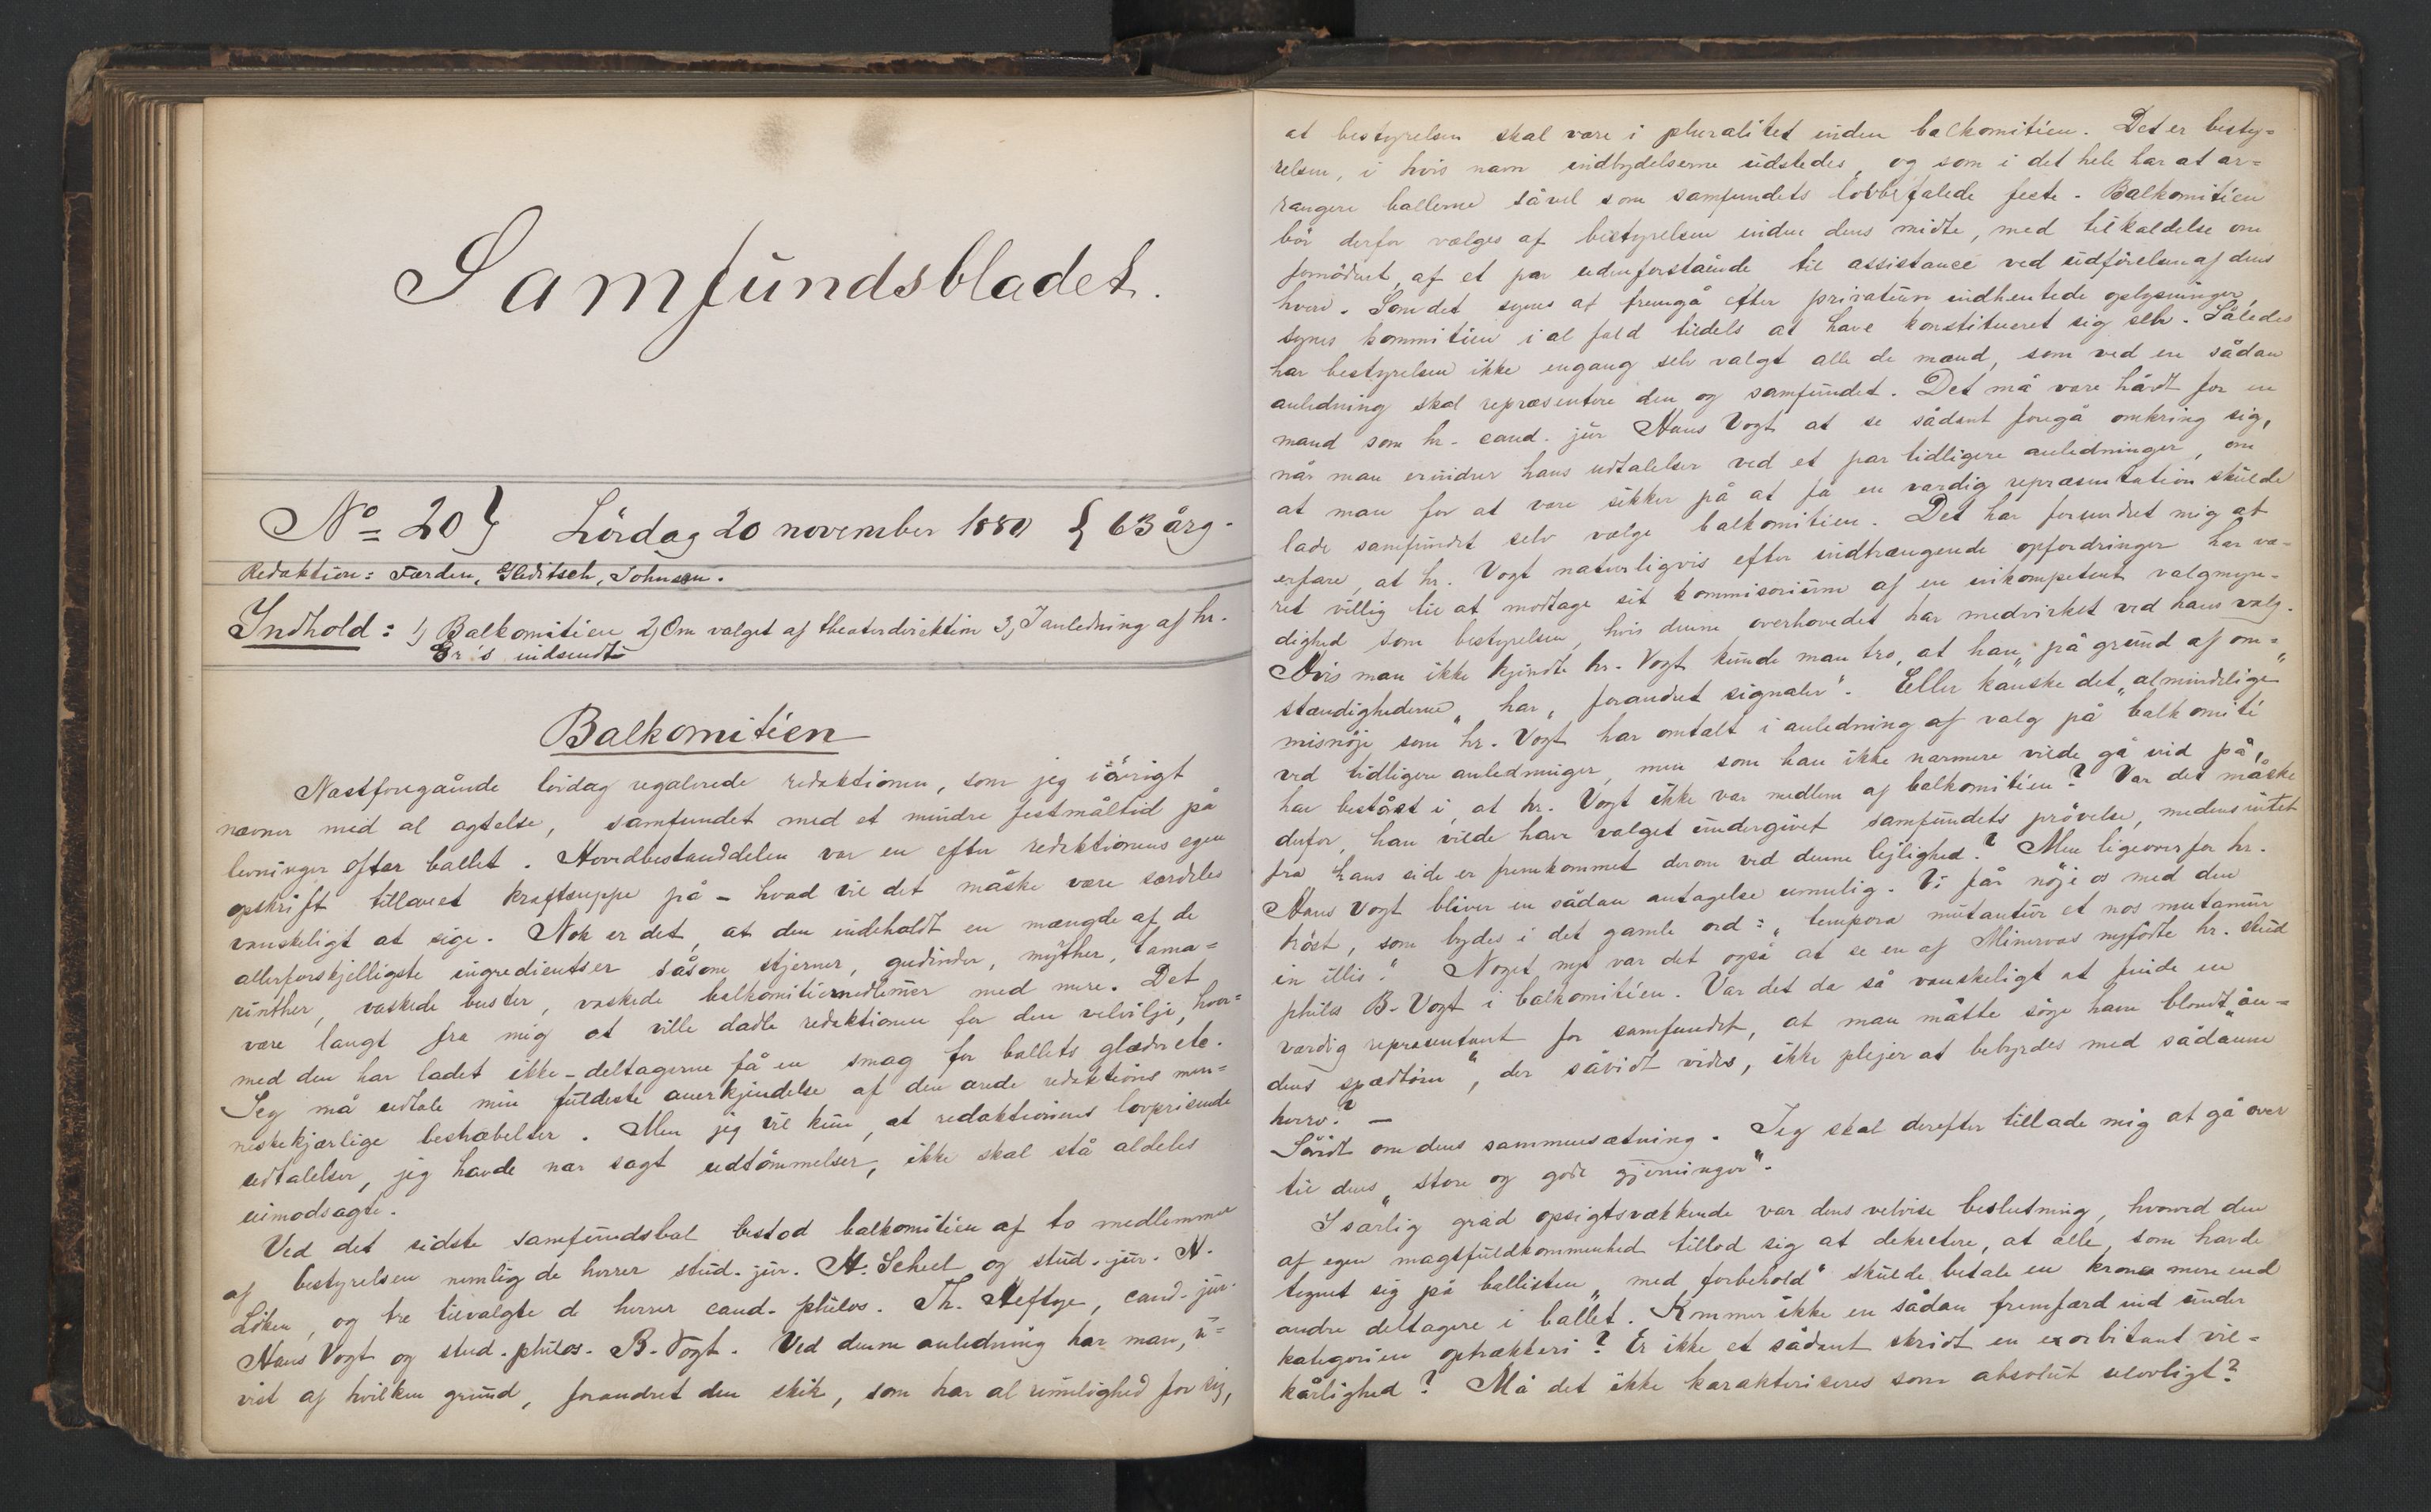 Samfundsbladet.
No 20} Lördag 20 november 1880 { 63 årg.
Redaktion: Færden, Gleditsch, Johnsen.
Indhold: 1) Balkomitien 2) Om valget af theaterdirektion 3) I anledning af hr.
Gr's indsendte
Balkomitien
Næstforegående lördag regalerede redaktionen, som jeg iövrigt
nævner med al agtelse, samfundet med et mindre festmåltid på
levninger efter ballet. Hovedbestanddelen var en efter redaktionens egen
opskrift tillavet kraftsuppe på - hvad vil det måske være særdeles
vanskeligt at sige. Nok er det, at den indeholdt en mængde af de
allerforskjelligste ingredientser såsom stjerner, gudinder, myther, tama-
rinther, vaskede buster, vaskede balkomitiemedlemer med mere. Det
være langt fra mig at ville dadle redaktionen for den velvilje, hvor-
med den har ladet ikke-deltagerne få en smag for ballets glæder etc.
Jeg må udtale min fuldeste anerkjendelse af den ærede redaktions men-
neskekjærlige bestræbelser. Men jeg vil kun, at redaktionens lovprisende
udtalelser, jeg havde nær sagt udtömmelser, ikke skal stå aldeles
uimodsagte.
Ved det sidste samfundsbal bestod balkomitien af to medlemmer
af bestyrelsen nemlig de herrer stud. jur. H. Scheel og stud. jur. H.
Löken, og tre tilvalgte de herrer cand. philos. Th. Heftye, cand. jur.
Hans Vogt og stud. philos. B. Vogt. Ved denne anledning har man, u-
vist af hvilken grund, forandret den skik, som har al rimelighed for sig,
at bestyrelsen skal være i pluralitet inden balkomitien. Det er besty-
relsen, i hvis navn indbydelserne udstedes, og som i det hele har at ar-
rangere ballerne såvel som samfundets lovbefalede feste. Balkomitien
bör derfor vælges af bestyrelsen inden dens midte, med tilkaldelse om
fornödent, af et par udenforstående til assistance ved udförelsen af dens
hverv. Som det synes at fremgå efter privatim indhentede oplysninger,
synes kommitien i al fald tildels at have konstitueret sig selv. Således
har bestyrelsen ikke engang selv valgt alle de mænd, som ved en sådan
anledning skal repræsentere den og samfundet. Det må være hårdt for en
mand som hr. cand. jur Hans Vogt at se sådant foregå omkring sig,
når man erindrer hans udtalelser ved et par tidligere anledninger, om
at man for at være sikker på at få en værdig repræsentation skulde
lade samfundet selv vælge balkomitien. Det har forundret mig at
erfare, at hr. Vogt naturligvis efter indtrængende opfordringer har væ-
ret villig til at modtage sit kommisorium af en inkompetent valgmyn-
dighed som bestyrelsen, hvis denne overhovedet har medvirket ved hans valg.
Hvis man ikke kjendte hr. Vogt kunde man tro, at han „på grund af om-
stændighederne" har „forandret signaler". Eller kanske det „almindelige
misnöje" som hr. Vogt har omtalt i anledning af valg på balkomiti
ved tidligere anledninger, men som han ikke nærmere vilde gå ind på,
har bestået i, at hr. Vogt ikke var medlem af balkomitien? Var det måske
derfor, han vilde have valget undergivet samfundets prövelse, medens intet
fra hans side er fremkommet derom ved denne lejlighed? Men ligeoverfor hr.
Hans Vogt bliver en sådan antagelse umulig. Vi får nöje os med den
tröst, som bydes i det gamle ord: „tempora mutantur et nos mutamur
in illis." Noget nyt var det også at se en af Minervas nyfödte hr. stud
philos B. Vogt i balkomitien. Var det da så vanskeligt at finde en
værdig repræsentant for samfundet, at man måtte söge ham blandt „ån-
dens spædbörn", der såvidt vides, ikke plejer at bebyrdes med sådanne
hverv? —
Såvidt om dens sammensætning. Jeg skal derefter tillade mig at gå over
til dens „store og gode gjerninger".
I særlig grad opsigtsvækkende var dens velvise beslutning, hvorved den
af egen magtfuldkommenhed tillod sig at dekretere, at alle, som havde
tegnet sig på ballisten „med forbehold" skulde betale en krone mere end
andre deltagere i ballet. Kommer ikke en sådan fremfærd ind under
kategorien optrækkeri? Er ikke et sådant skridt en exorbitant vil-
kårlighed? Må det ikke karakteriseres som absolut ulovligt?